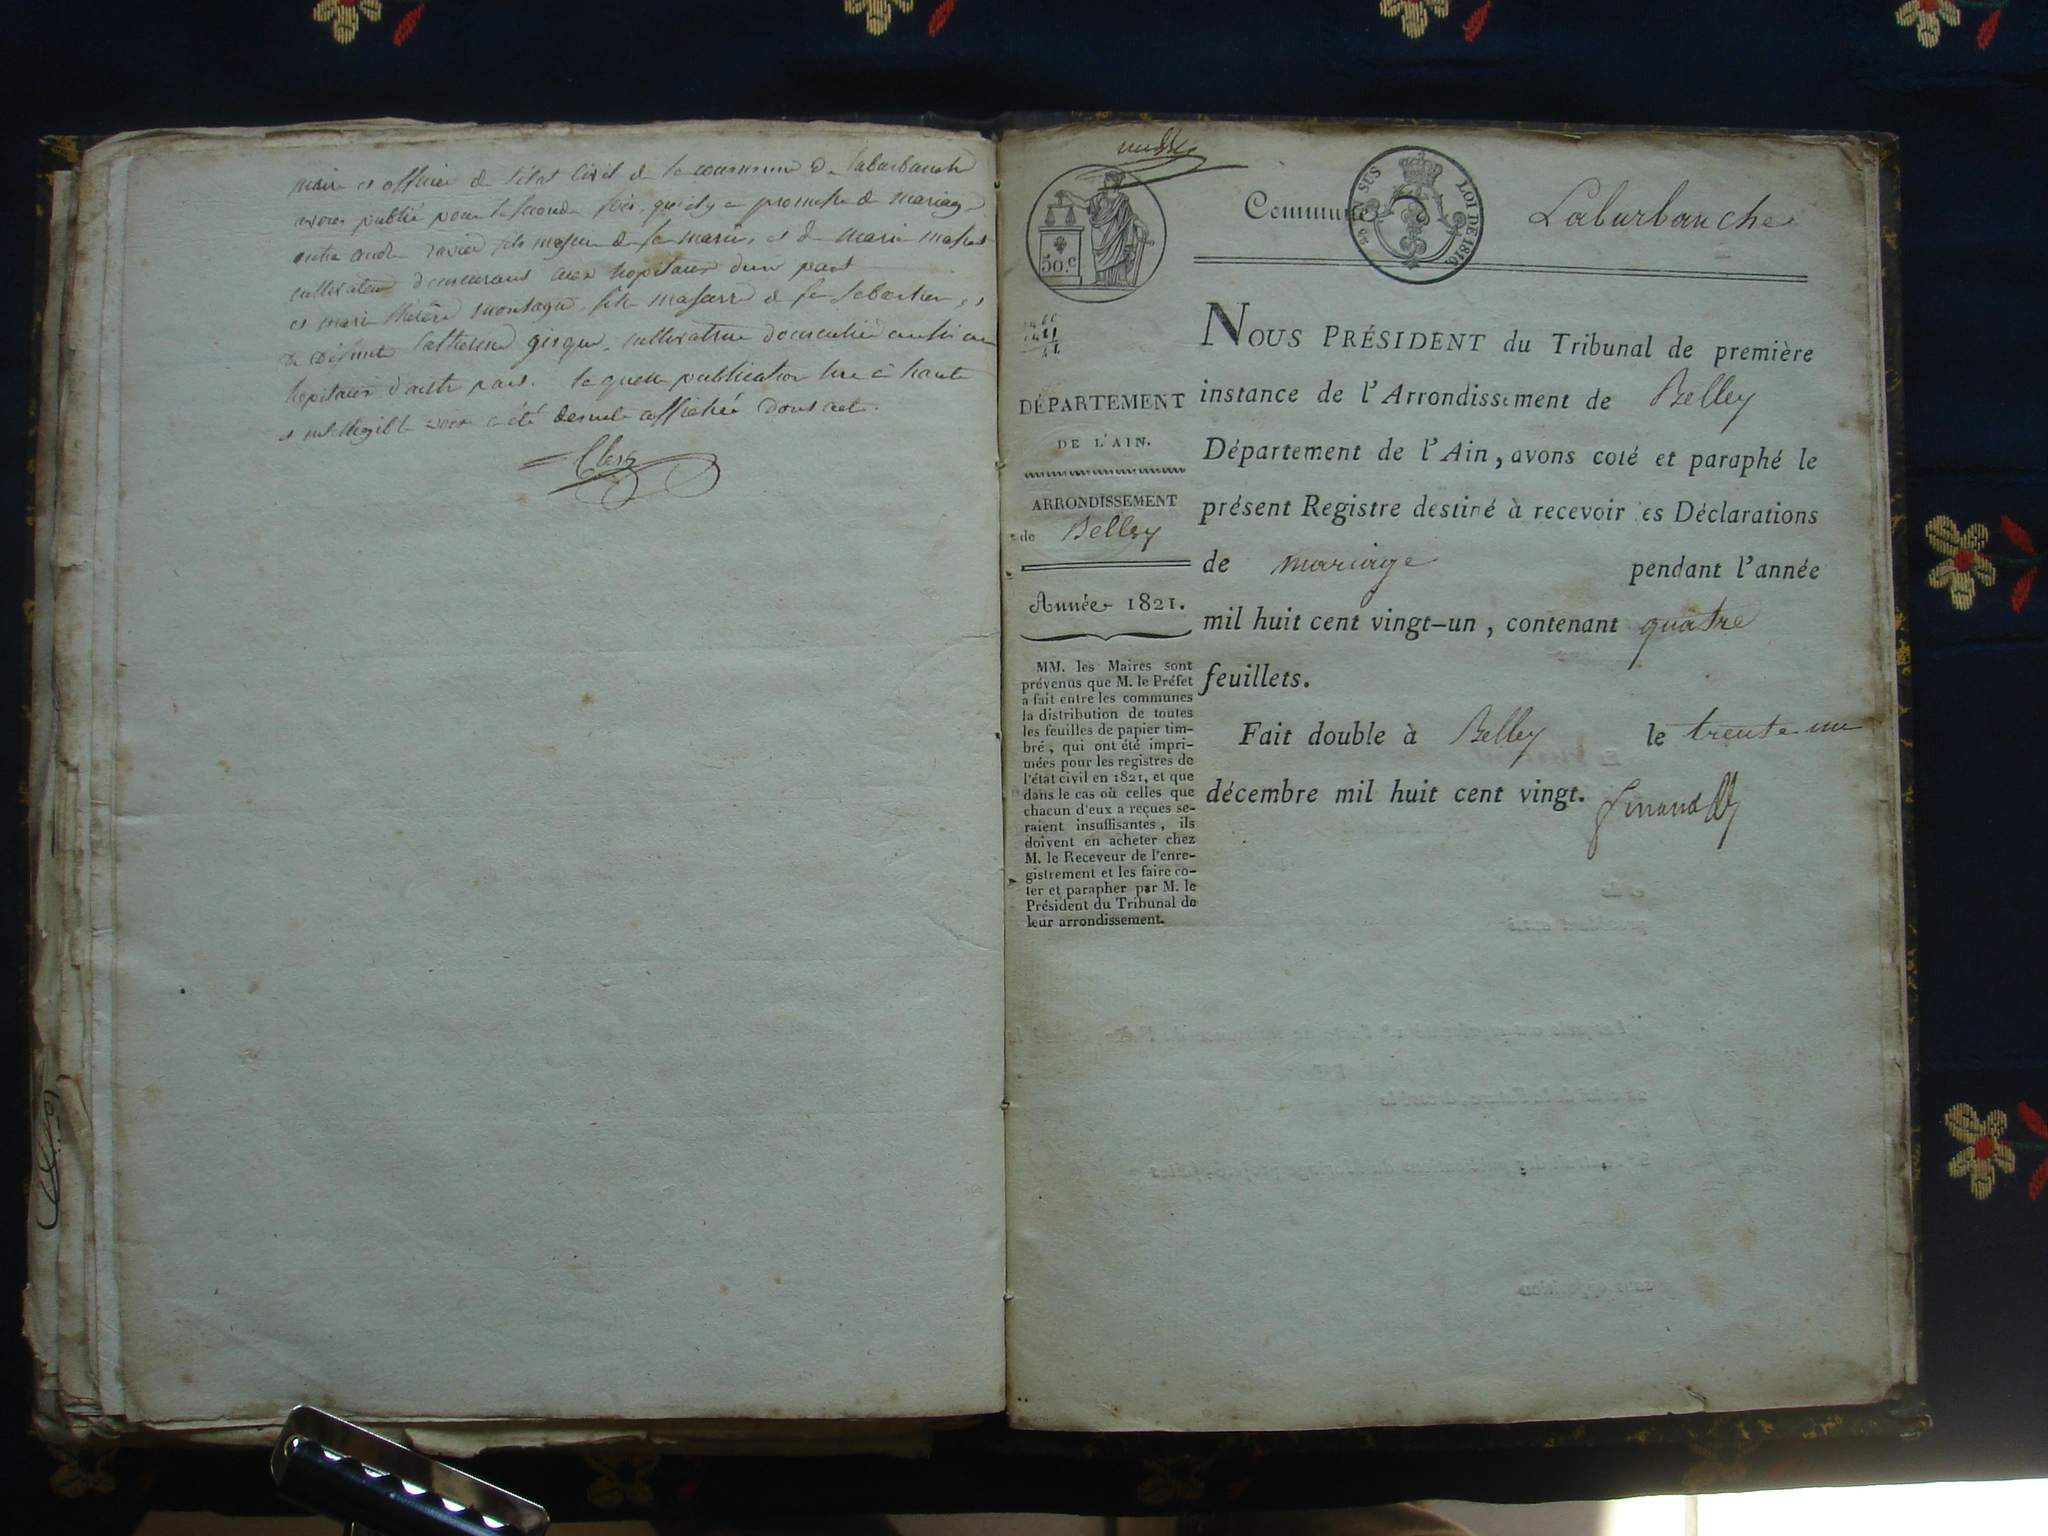 maire et officier de l'état Civil de la commune de labarbanche
avons publié pour la seconde fois, qu'il y a promesse de mariage
entre fils majeur de feu marin, et de marie
cultivateur demeurant aux hopitaux d'une part
et marie thérèse montagne, fille majeure de feu Sebastien, et
de défunte Catherine cultivatrice aussi aux
hopitaux d'autre part. la quelle publication lue à haute
et intelligible voix a été de suite affichée dont acte.
Clerc
50.c
SUS
LOI DE 1816
Commune
Labarbanche
NOUS PRÉSIDENT du Tribunal de première
instance de l'Arrondissement de Belley
Département de l'Ain, avons coté et paraphé le
présent Registre destiné à recevoir les Déclarations
de mariage pendant l'année
mil huit cent vingt-un, contenant quatre
feuillets.
Fait double à Belley le trente un
décembre mil huit cent vingt.
DÉPARTEMENT
DE L'AIN.
ARRONDISSEMENT
de Belley
Année 1821.
MM. les Maires sont
prévenus que M. le Préfet
a fait entre les communes
la distribution de toutes
les feuilles de papier tim-
bré, qui ont été impri-
mées pour les registres de
l'état civil en 1821, et que
dans le cas où celles que
chacun d'eux a reçues se-
raient insuffisantes, ils
doivent en acheter chez
M. le Receveur de l'enre-
gistrement et les faire co-
ter et parapher par M. le
Président du Tribunal de
leur arrondissement.